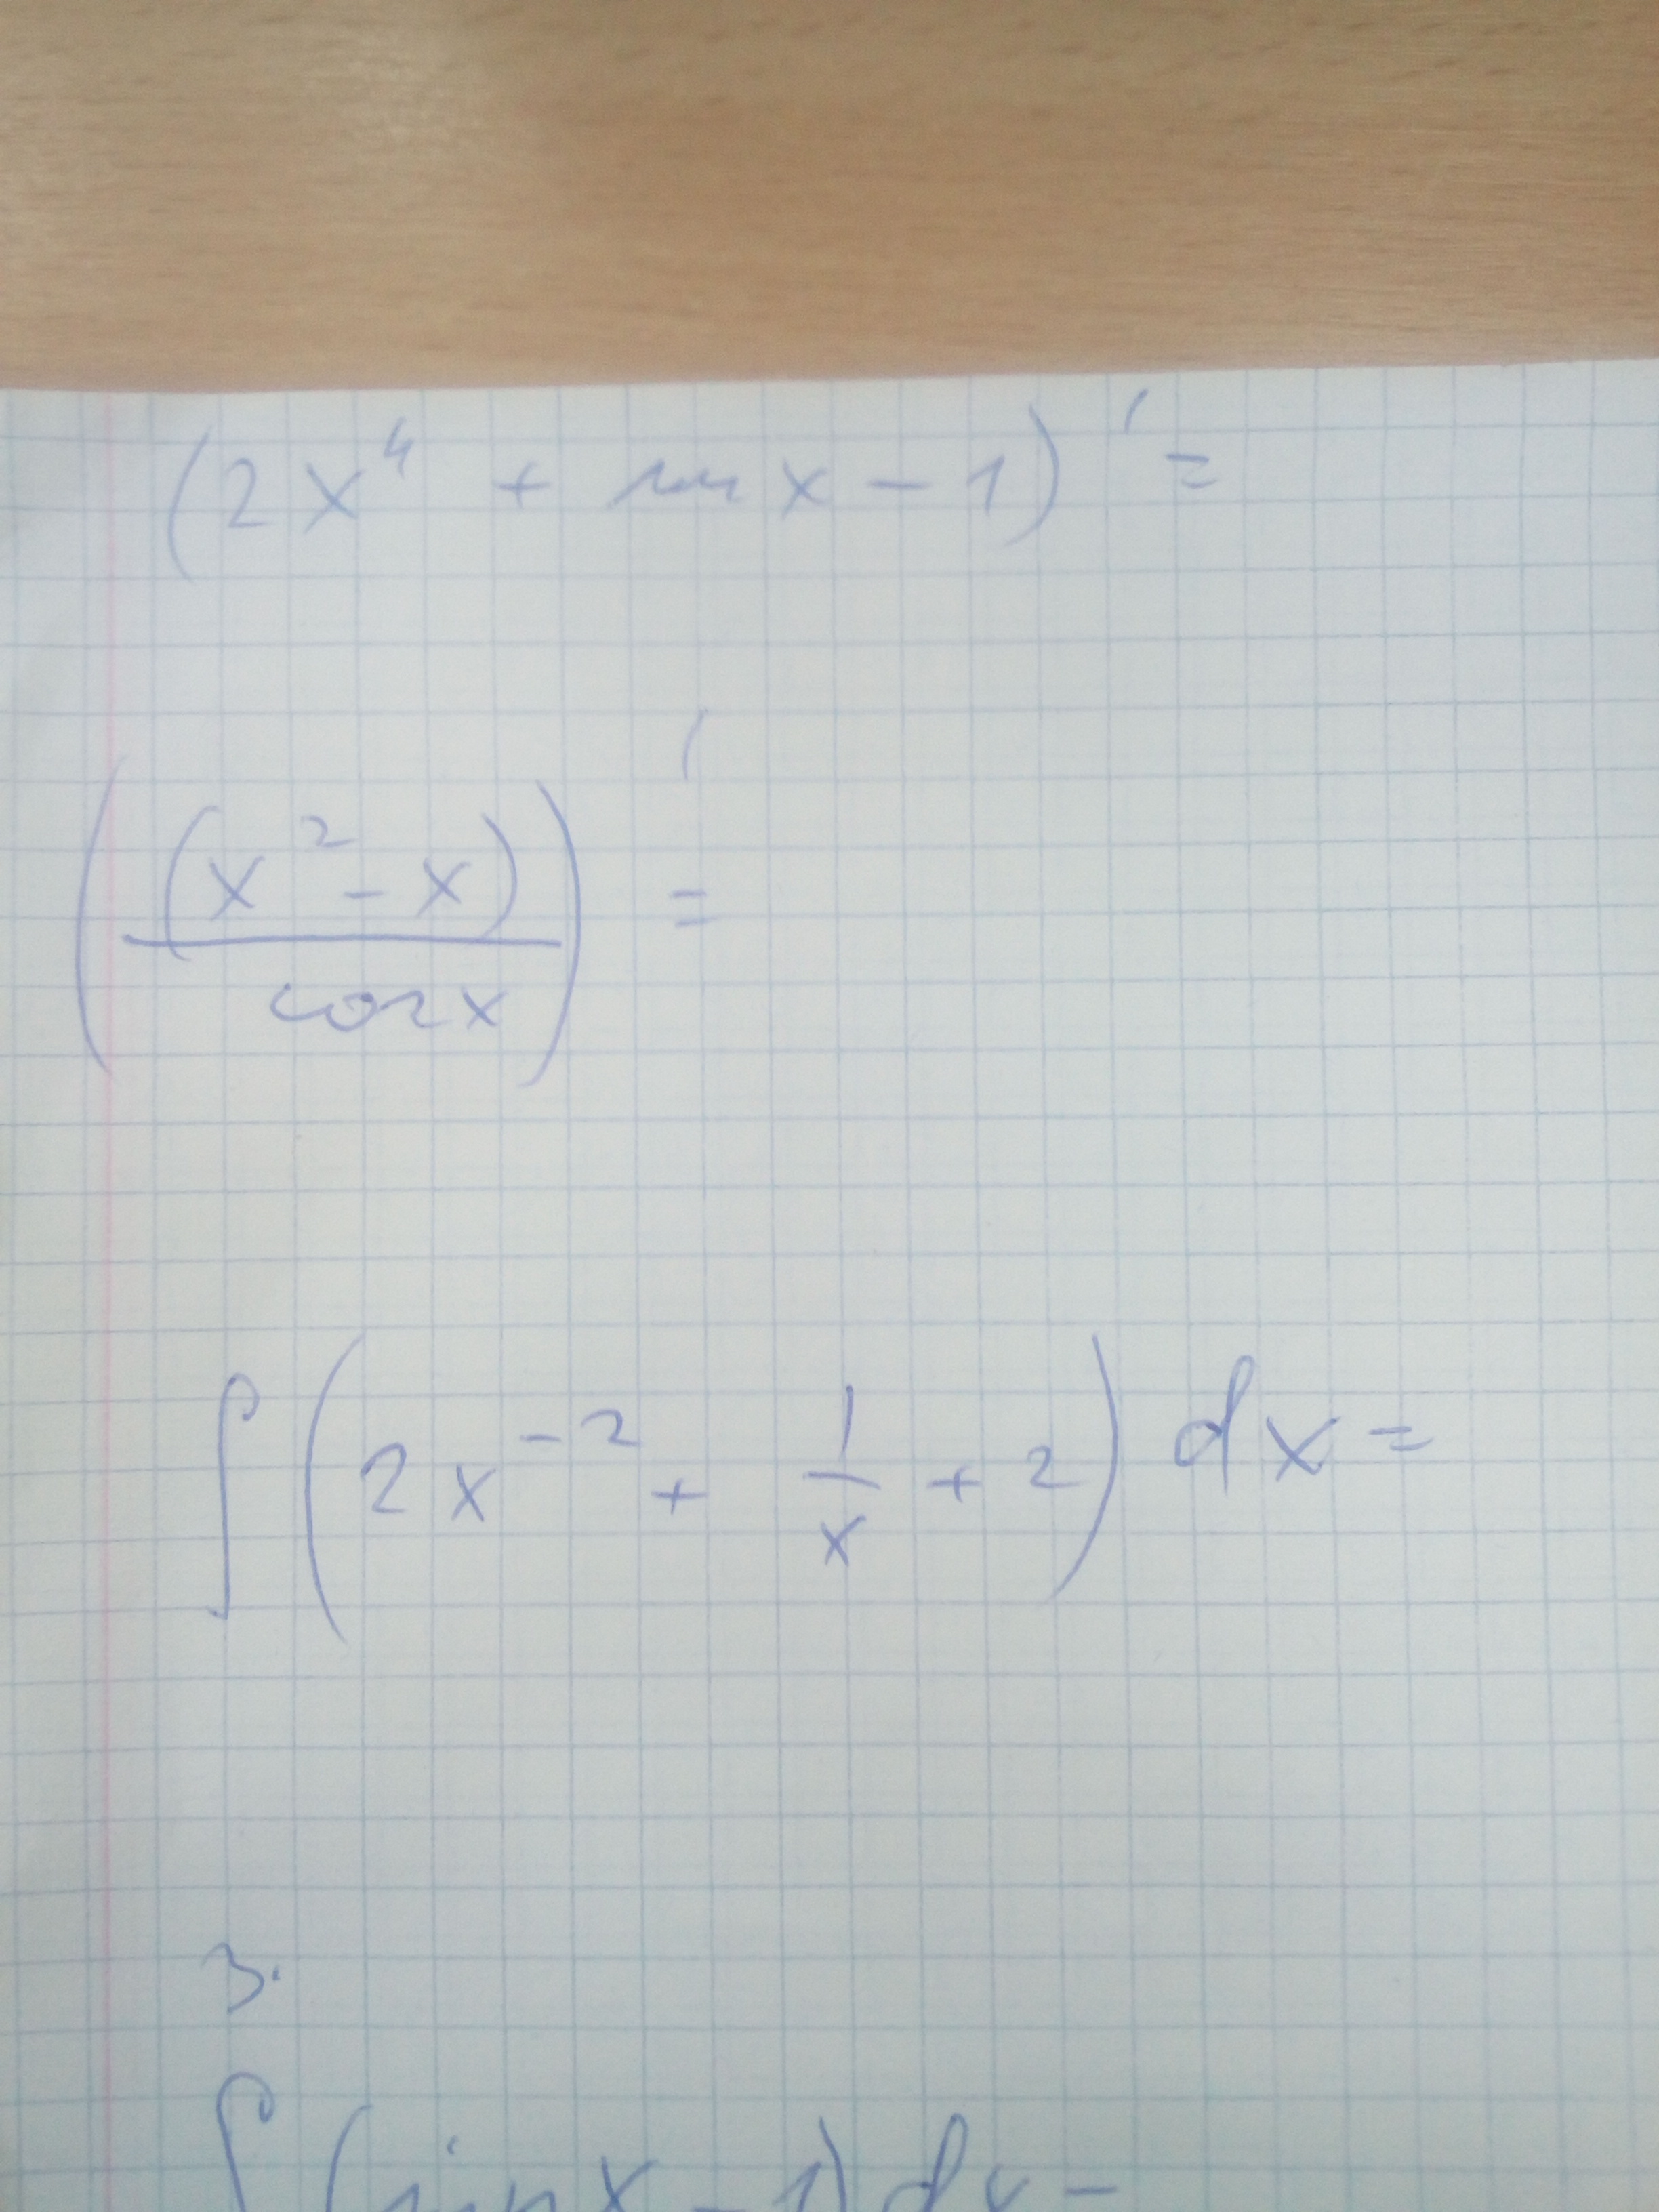 (2x⁴ + sin x - 1)' =
((x² - x) / cos x)' =
∫ (2x⁻² + 1/x + 2) dx =
3.
∫ (sin x - 1) dx =